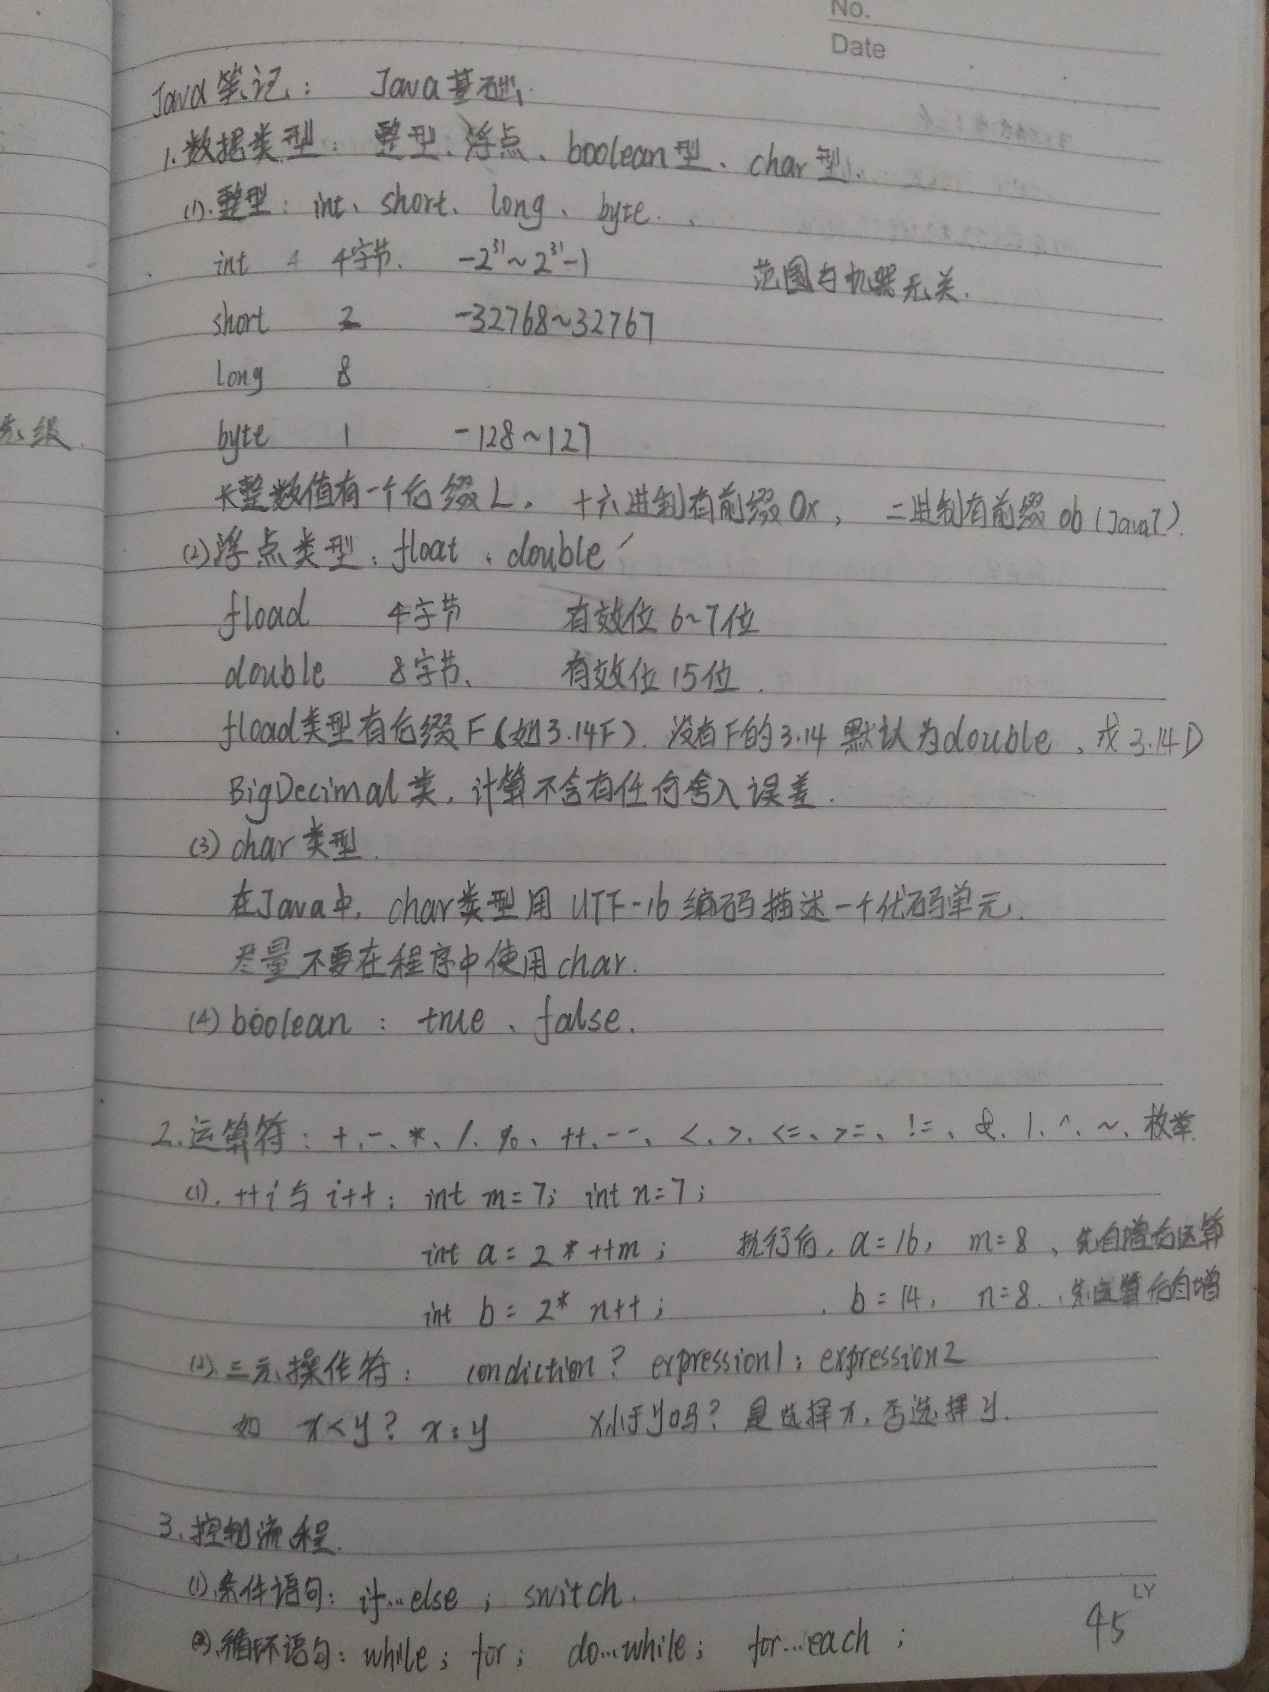 No.
Date
Java笔记: Java基础
1.数据类型: 整型、浮点、boolean型、char型.
(1).整型: int、short、long、byte.
int 4 4字节. -2³¹~2³¹-1 范围与机器无关.
short 2 -32768~32767
long 8
byte 1 -128~127
长整数值有一个后缀L, 十六进制有前缀0x, 二进制有前缀0b(Java7).
(2)浮点类型: float、double
fload 4字节 有效位6~7位
double 8字节、 有效位15位.
fload类型有后缀F(如3.14F). 没有F的3.14默认为double、或3.14D
BigDecimal类, 计算不含有任何舍入误差.
(3) char类型.
在Java中, char类型用UTF-16编码描述一个代码单元.
尽量不要在程序中使用char.
(4) boolean: true、false.
2.运算符: +、-、*、/、%、++、--、<、>、<=、>=、!=、&、|、^、~、枚举.
(1). ++i与i++: int m=7; int n=7;
int a = 2 * ++m; 执行后, a=16, m=8、先自增后运算
int b = 2* n++; b=14, n=8.、先运算后自增
(2).三元操作符: condiction? expression1: expression2
如 x<y? x:y x小于y吗? 是选择x, 否选择y.
3.控制流程.
(1)条件语句: if...else; switch.
(2).循环语句: while; for; do...while; for...each;
LY
45
系级